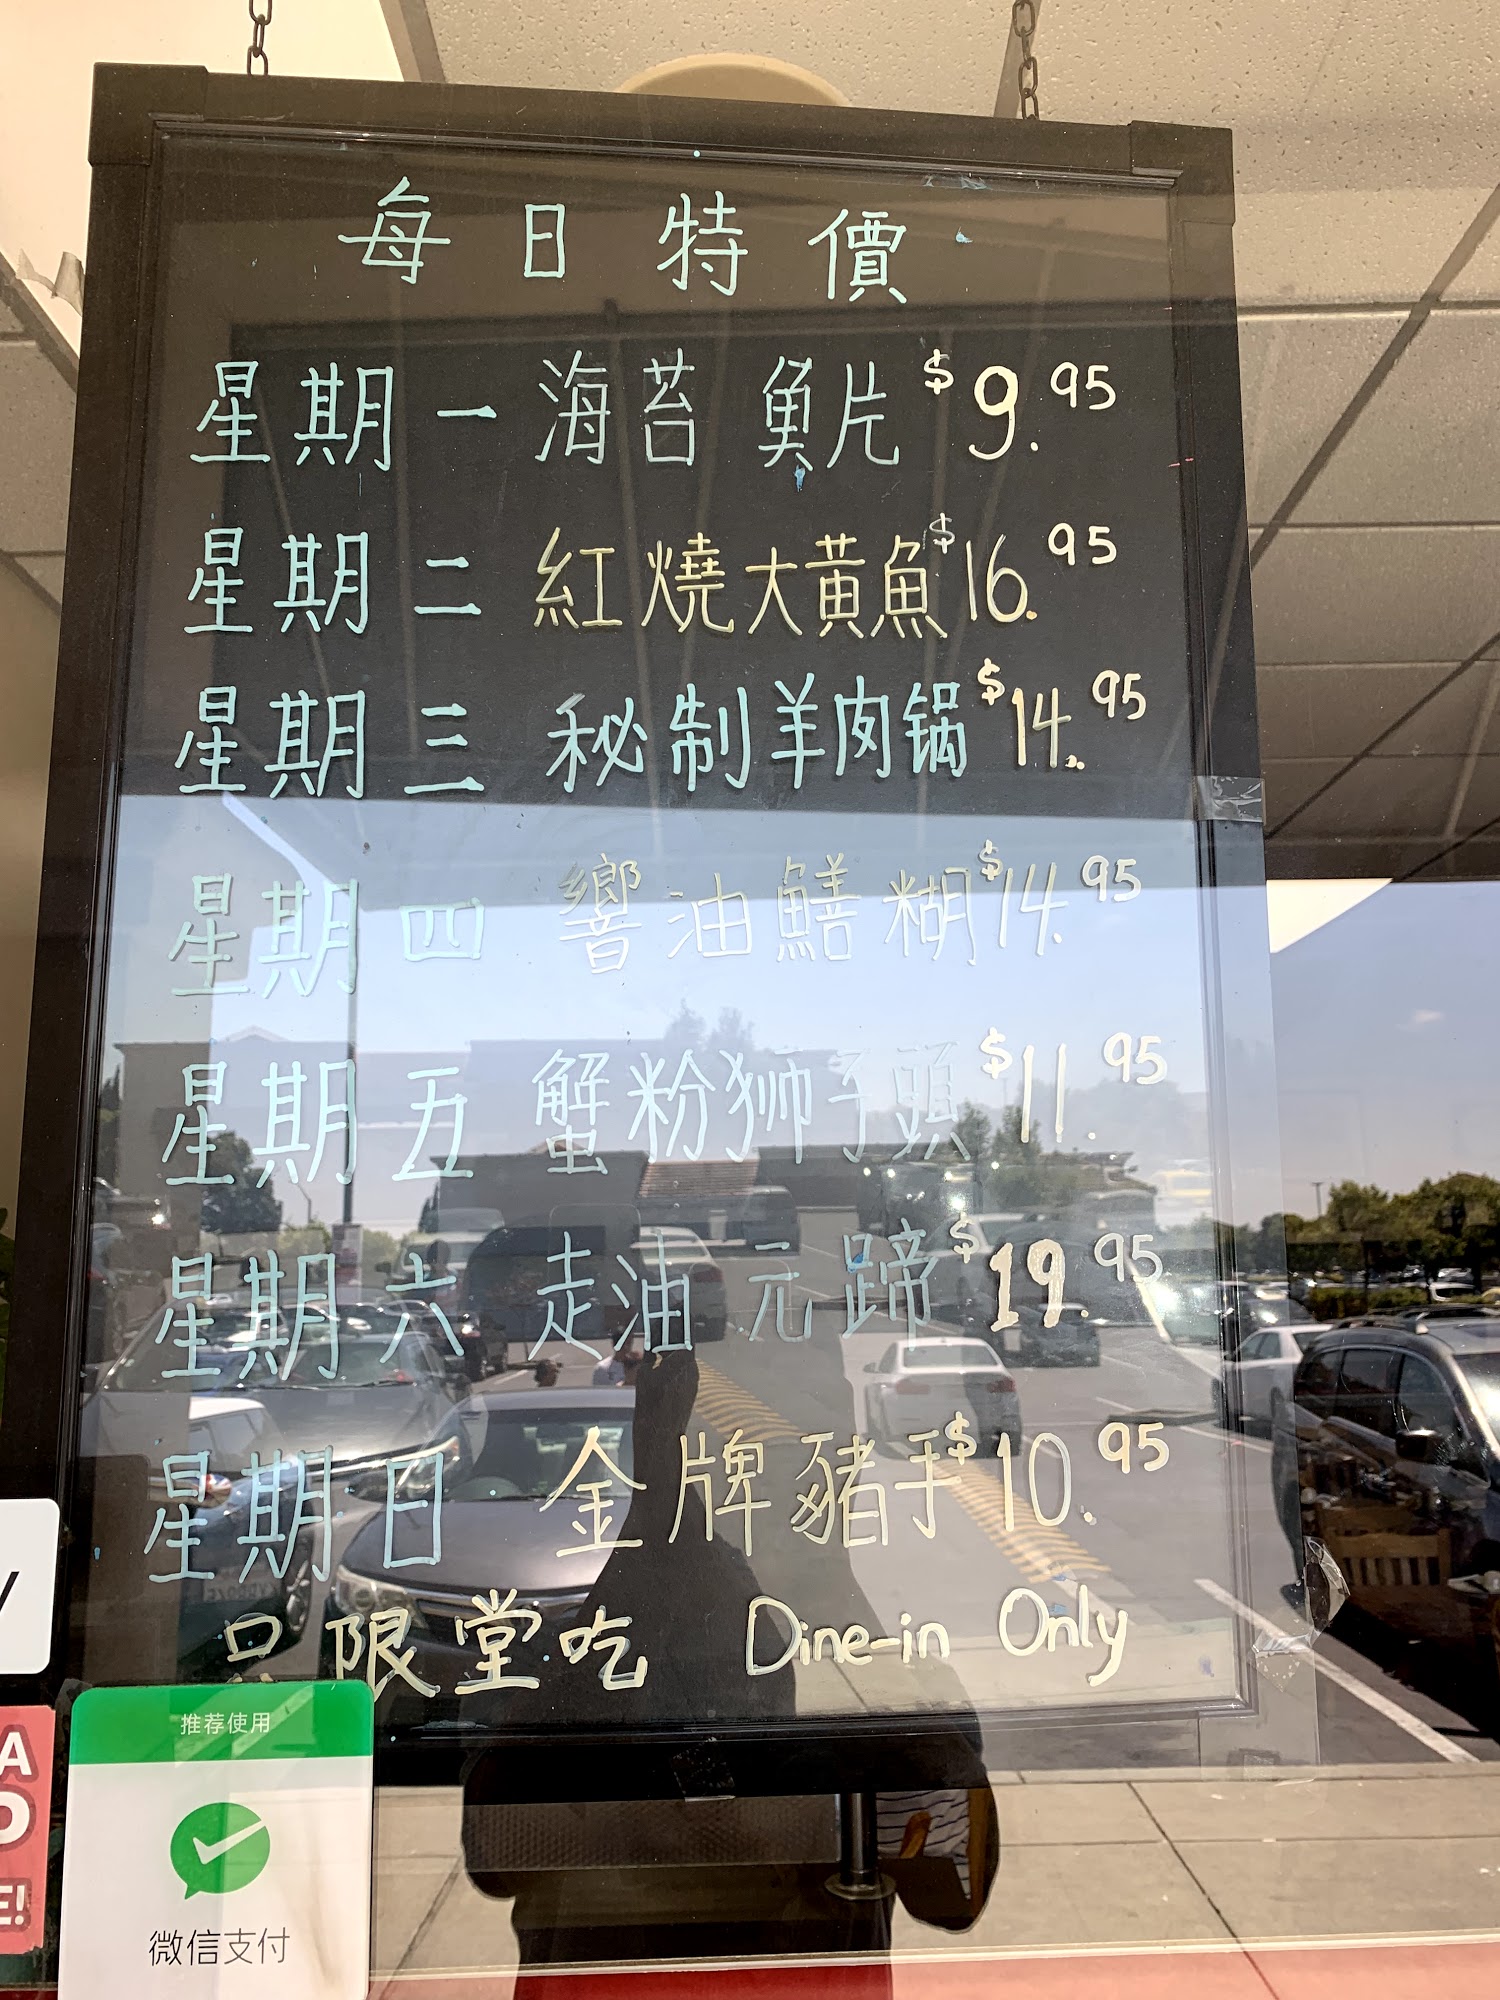 每日特價
星期一 海苔魚片 $9.95
星期二 紅燒大黃魚 $16.95
星期三 秘制羊肉锅 $14.95
星期四 響油鱔糊 $14.95
星期五 蟹粉狮子頭 $11.95
星期六 走油元蹄 $19.95
星期日 金牌豬手 $10.95
只限堂吃 Dine-in Only
推荐使用
微信支付